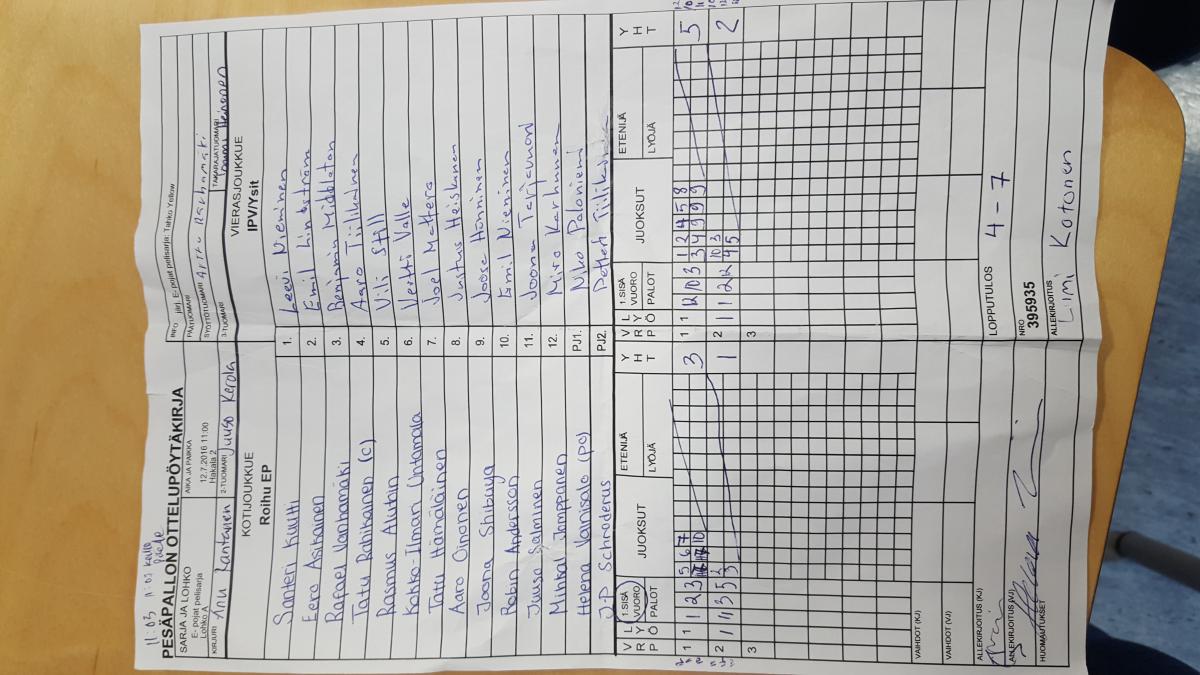 11:03
PESÄPALLON OTTELUPÖYTÄKIRJA
SARJA JA LOHKO
E- pojat pelisarja
AIKA JA PAIKKA
12.7.2016 11:00
Hakala 2
INFO järj. E- pojat pelisarja: Tahko Yellow
PÄÄTUOMARI
SYÖTTÖTUOMARI Arttu Rauhamäki
KIRJURI Anu Rantanen
2-TUOMARI Juuso Kerola
3-TUOMARI
TAKARAJATUOMARI
KOTIJOUKKUE
Roihu EP
VIERASJOUKKUE
IPV/Ysit
Santeri Kuutti 1. Leevi Nieminen
Eero Asikainen 2. Emil Lindström
Rafael Vanhamäki 3. Benjamin Middleton
Tatu Rabikainen (c) 4. Aaro Tiilikainen
Rasmus Alutoin 5. Vili Still
Kokko-Ilmari Uhtamala 6. Vertti Valle
Tatu Hämäläinen 7. Joel Mattera
Aaro Oinonen 8. Justus Heiskanen
Joona Shibuya 9. Joose Hänninen
Robin Andersson 10. Emil Nieninen
Juuso Salminen 11. Joona
Minkal Jamppanen 12. Miro Karhunen
Helena Vainisalo (PJ) PJ1. Niko Paloniemi
J-P Schroderus PJ2. Petteri
V R P
L Y Ö
1.SISÄ
VUORO
PALOT
JUOKSUT
ETENIJÄ
LYÖJÄ
Y H T
V R P
L Y Ö
1.SISÄ
VUORO
PALOT
JUOKSUT
ETENIJÄ
LYÖJÄ
Y H T
1 1 1 2 3 5 6 7 3
10
2 1 4 3 5 2 1
3
3
1 1 12 10 3 1 2 4 5 8 5
3 4 9 9 9
2 1 1 2 2 10 3 2
4 5
3
VAIHDOT (KJ)
VAIHDOT (VJ)
ALLEKIRJOITUS (KJ)
ALLEKIRJOITUS (VJ)
HUOMAUTUKSET
LOPPUTULOS 4 - 7
NRO
3955935
ALLEKIRJOITUS
Limi Kotonen